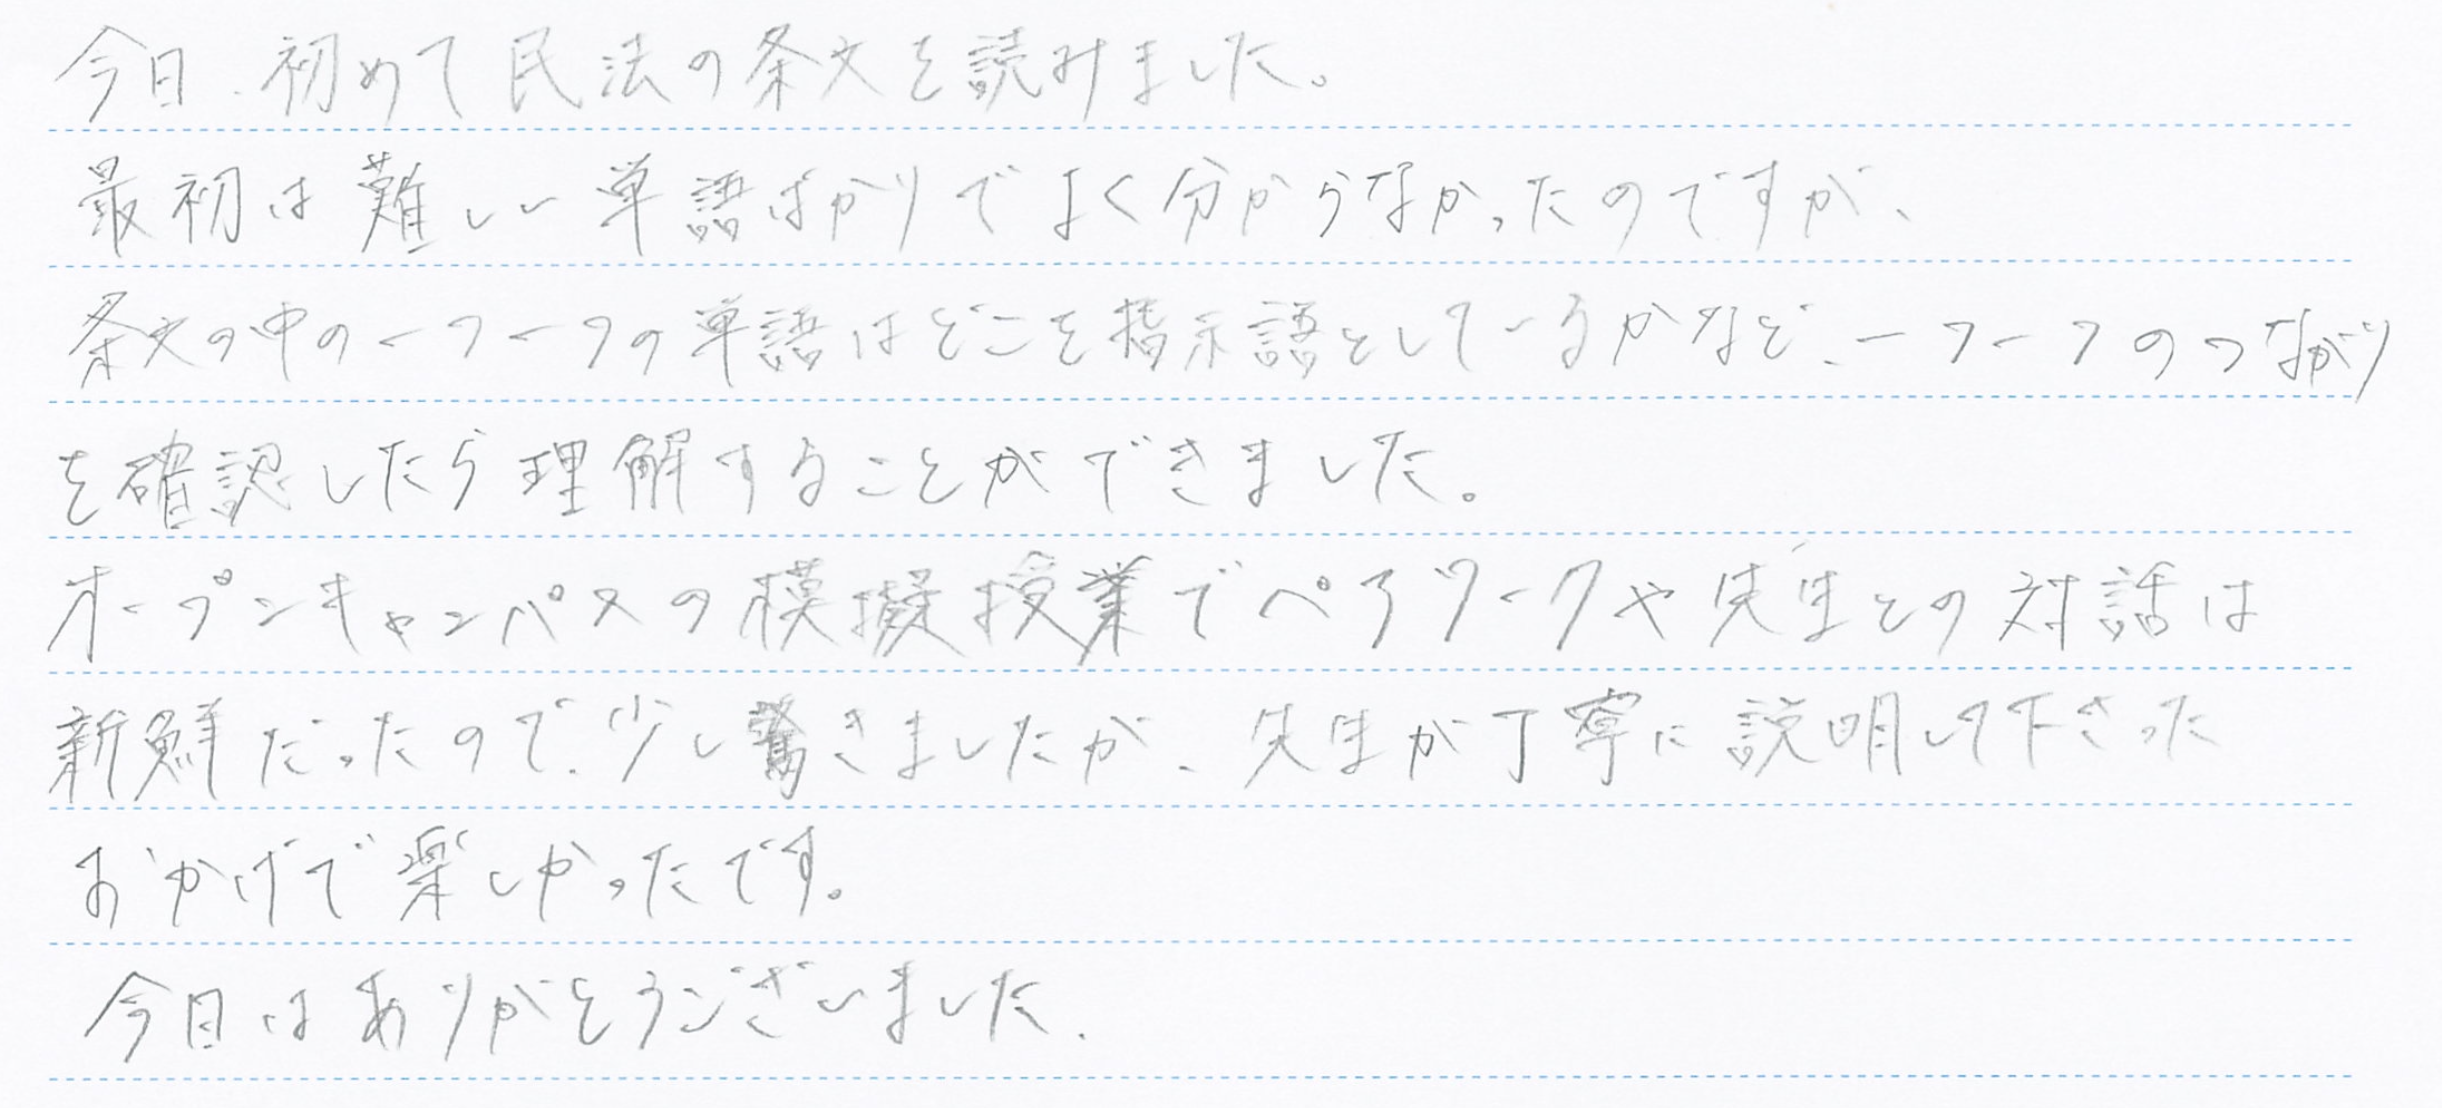 今日、初めて民法の条文を読みました。
最初は難しい単語ばかりでよく分からなかったのですが、
条文の中の一つ一つの単語はどこを指示語としているかなど、一つ一つのつながり
を確認したら理解することができました。
オープンキャンパスの模擬授業でペアワークや先生との対話は
新鮮だったので、少し驚きましたが、先生が丁寧に説明して下さった
おかげで楽しかったです。
今日はありがとうございました.